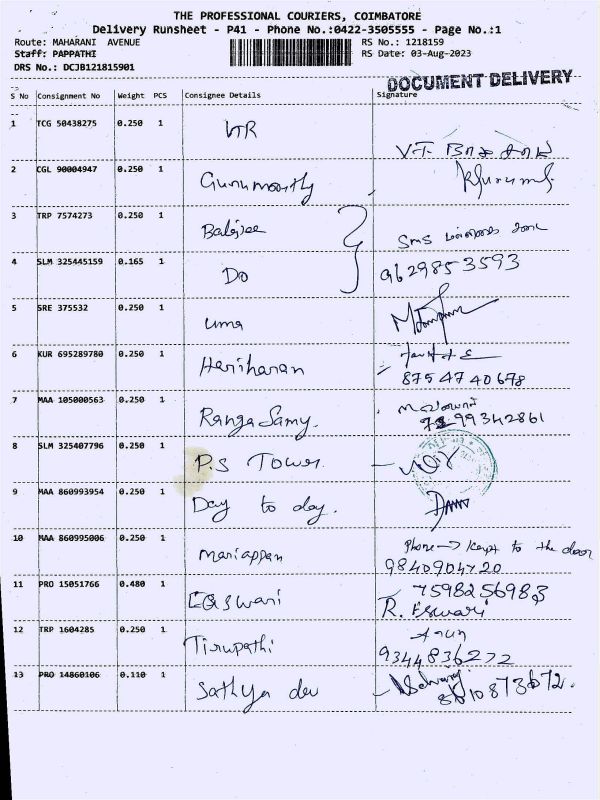 THE PROFESSIONAL COURIERS, COIMBATORE
Delivery Runsheet - P41 - Phone No.:0422-3505555 - Page No.:1
Route: MAHARANI AVENUE RS No.: 1218159
Staff: PAPPATHI RS Date: 03-Aug-2023
DRS No.: DCJB121815901
DOCUMENT DELIVERY
S No Consignment No Weight PCS Consignee Details Signature
1 TCG 50438275 0.250 1 VTR
2 CGL 90004947 0.250 1 Gurumoorthy
3 TRP 7574273 0.250 1 Balajee SMS
4 SLM 325445159 0.165 1 Do 9629853593
5 SRE 375532 0.250 1 uma
6 KUR 695289780 0.250 1 Hariharan
8754740678
7 MAA 105000563 0.250 1 Ranga Samy. 99342861
8 SLM 325407796 0.250 1 P.S Tower.
9 MAA 860993954 0.250 1 Day to day.
10 MAA 860995006 0.250 1 mariappan Phone → kept to the door
9840904720
11 PRO 15051766 0.480 1 Easwari 7598256983
R. Eswari
12 TRP 1604285 0.250 1 Tirupathi
9344836272
13 PRO 14860106 0.110 1 Sathya dev